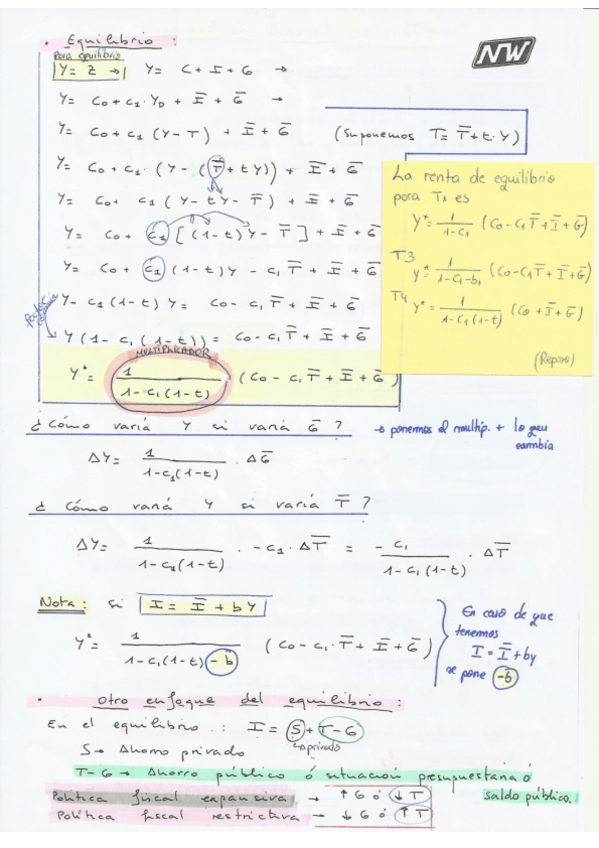 • Equilibrio :
NW
Para equilibrio
Y= Z → Y= C+I+G →
Y= C0+c1·YD+Ī+Ḡ →
Y= C0+c1(Y-T)+Ī+Ḡ (Suponemos T=T̄+t·Y)
Y= C0+c1·(Y-(T̄+tY))+Ī+Ḡ
Y= C0+ c1(Y-tY-T̄)+Ī+Ḡ
Y= C0+ c1[(1-t)Y-T̄]+Ī+Ḡ
Y= C0+ c1(1-t)Y-c1T̄+Ī+Ḡ
Y-c1(1-t)Y= C0-c1T̄+Ī+Ḡ
factor común
Y(1-c1(1-t))= C0-c1T̄+Ī+Ḡ
MULTIPLICADOR
Y*= 1/(1-c1(1-t)) · (C0-c1T̄+Ī+Ḡ)
La renta de equilibrio
para T1 es
Y*= 1/(1-c1) (C0-C1T̄+Ī+Ḡ)
T3
Y*= 1/(1-C1-b1) (C0-C1T̄+Ī+Ḡ)
T4 Y*= 1/(1-C1(1-t)) (C0+Ī+Ḡ)
(Repaso)
¿Cómo varía Y si varía Ḡ? → ponemos el multip. + lo que cambia
ΔY= 1/(1-c1(1-t)) · ΔḠ
¿Cómo varía Y si varía T̄?
ΔY= 1/(1-c1(1-t)) · -c1·ΔT̄ = -c1/(1-c1(1-t)) · ΔT̄
Nota: si I=Ī+bY
Y*= 1/(1-c1(1-t)-b) (C0-c1·T̄+Ī+Ḡ)
En caso de que
tenemos
I=Ī+by
se pone -b
• Otro enfoque del equilibrio:
En el equilibrio: I=S+T-G
↳privado
S→ Ahorro privado
T-G→ Ahorro público ó situación presupuestaria ó
saldo público.
Política fiscal expansiva → ↑G ó ↓T
Política fiscal restrictiva → ↓G ó ↑T